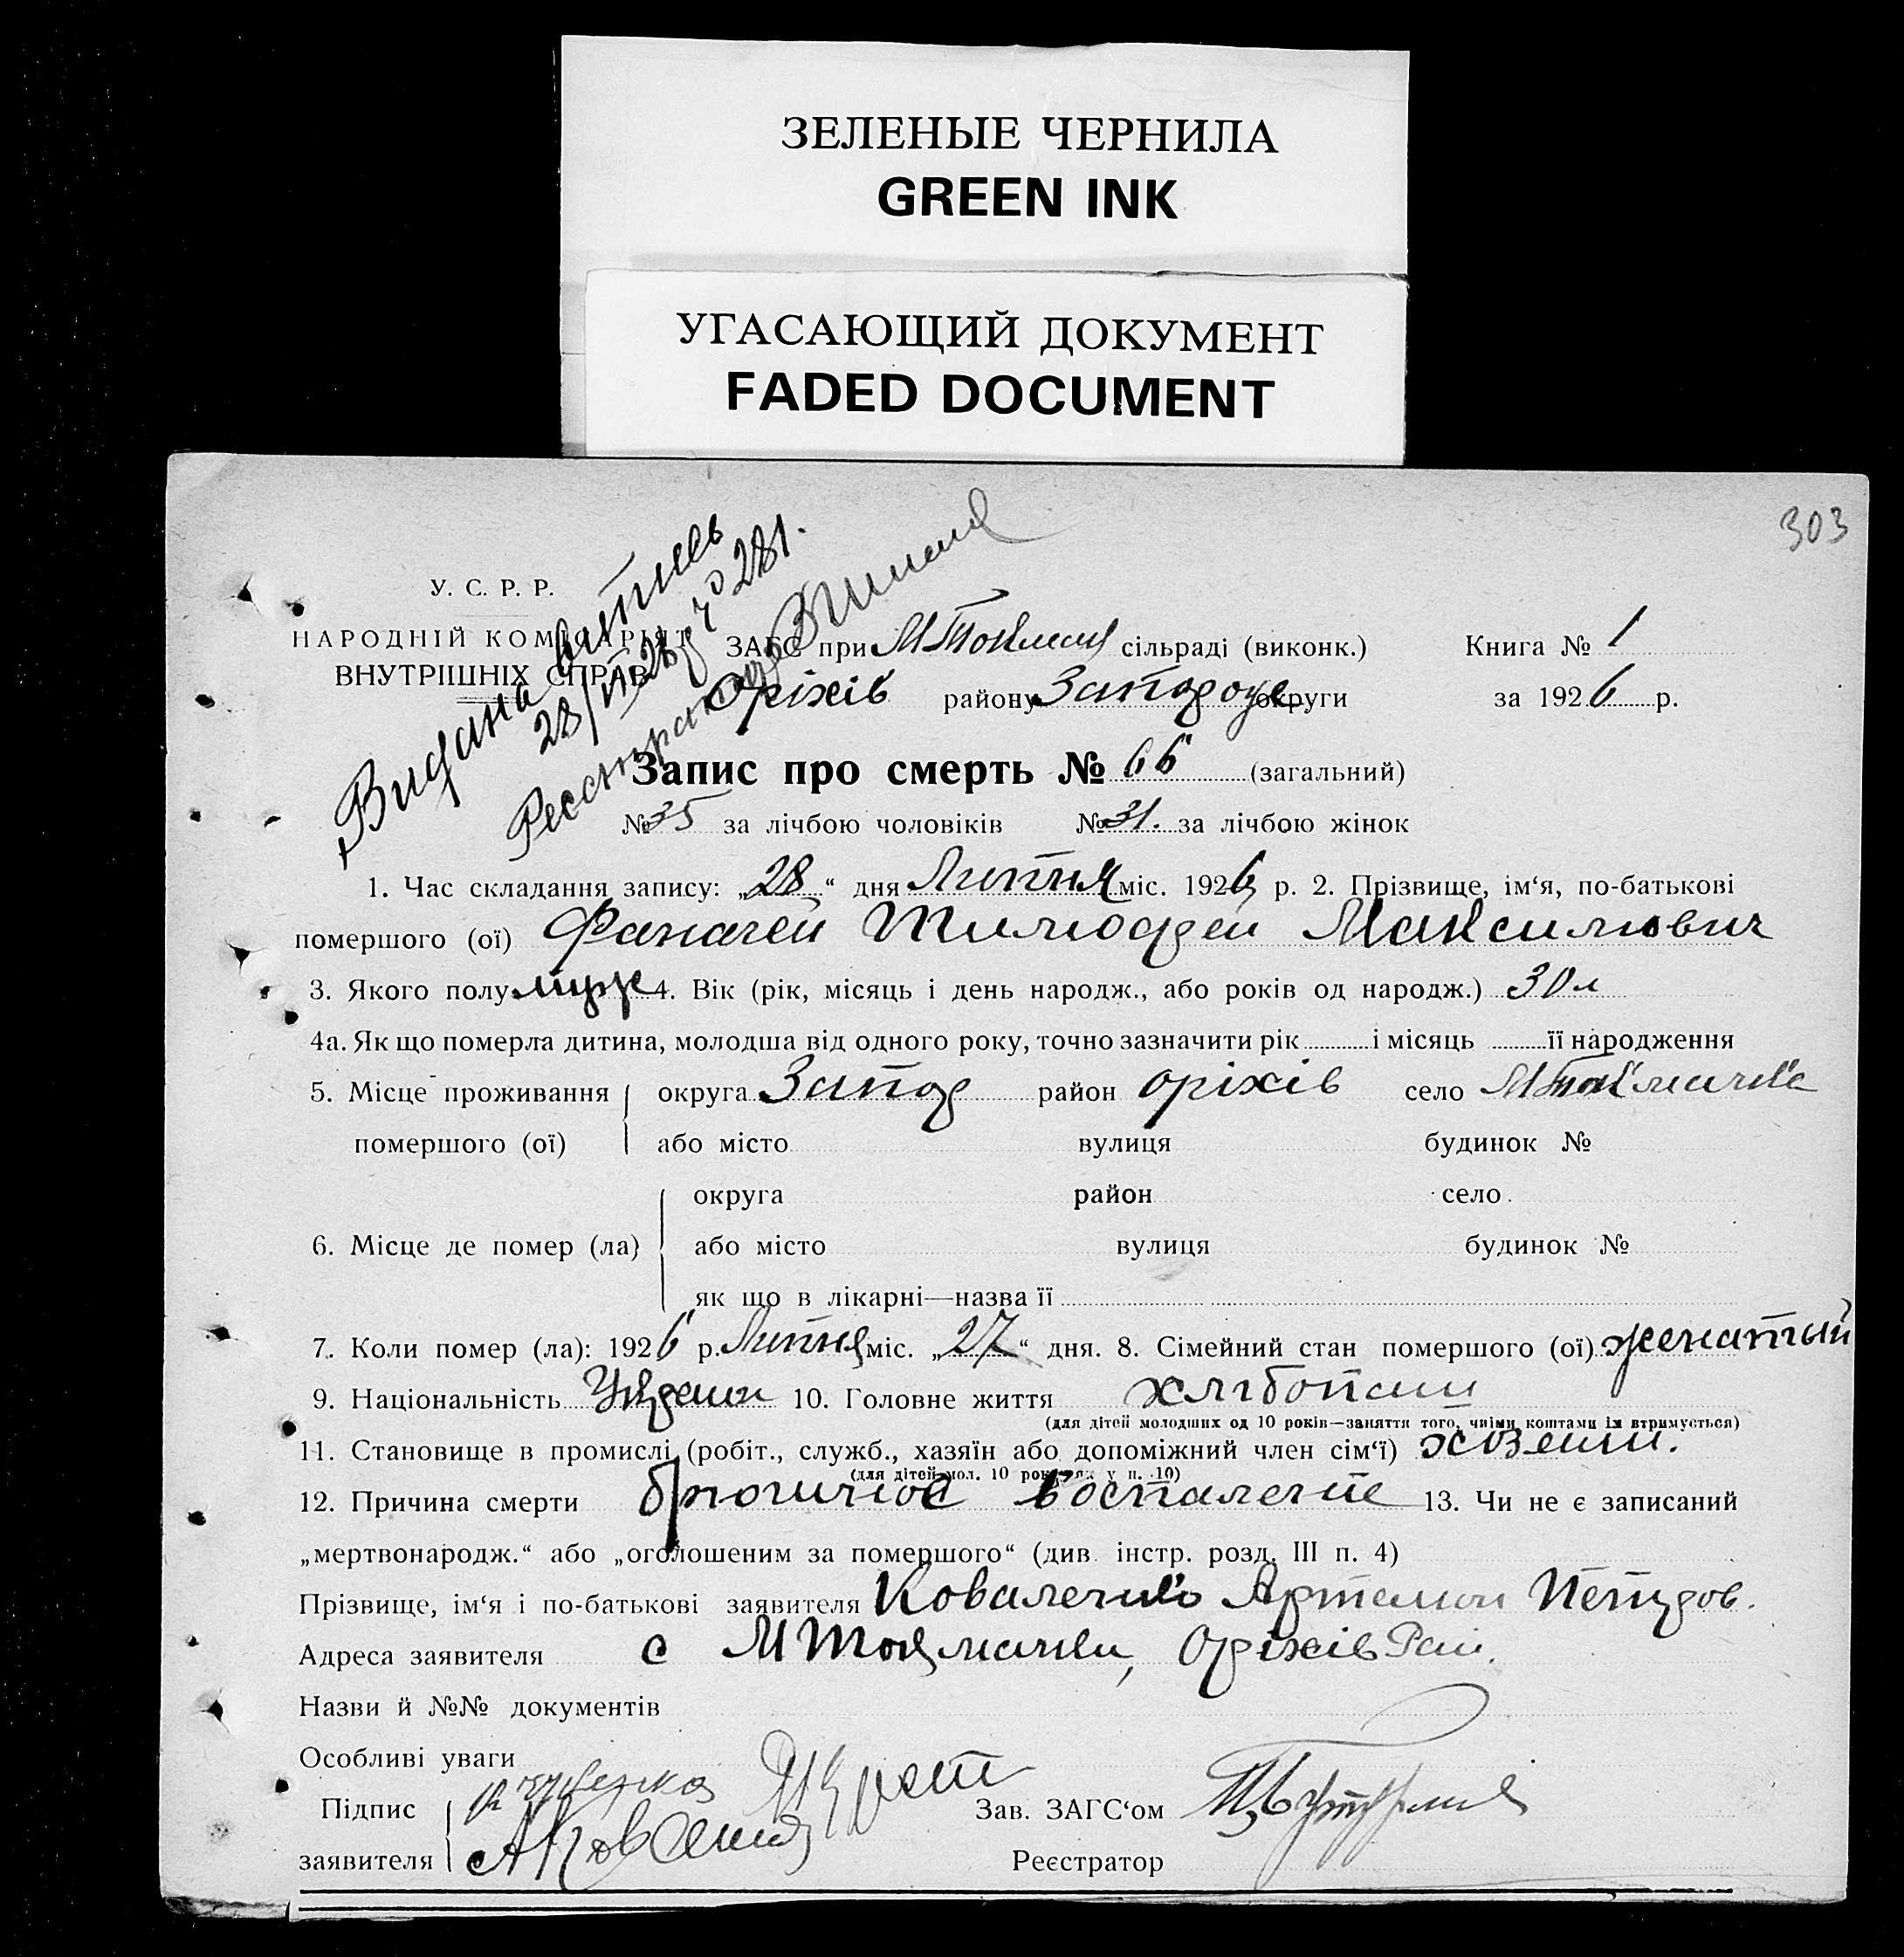 ЗЕЛЕНЫЕ ЧЕРНИЛА
GREEN INK
УГАСАЮЩИЙ ДОКУМЕНТ
FADED DOCUMENT
303
Видана витпсь
28/VII 26 р. № 281.
У. С. Р. Р.
НАРОДНІЙ КОМІСАРІЯТ
ВНУТРІШНІХ СПРАВ
ЗАГС при М Токмац сільраді (виконк.) Книга № 1
Оріхів району Запорож округи за 1926 р.
Запис про смерть № 66 (загальний)
№ 35 за лічбою чоловіків № 31. за лічбою жінок
1. Час складання запису: „28“ дня Липня міс. 1926 р. 2. Прізвище, ім‘я, по-батькові
помершого (ої) Фаначей Тимофей Максимович
3. Якого полу муж 4. Вік (рік, місяць і день народж., або років од народж.) 30 л
4а. Як що померла дитина, молодша від одного року, точно зазначити рік і місяць її народження
5. Місце проживання округа Запор район Оріхів село МТокмачка
помершого (ої) або місто вулиця будинок №
округа район село
6. Місце де помер (ла) або місто вулиця будинок №
як що в лікарні—назва її
7. Коли помер (ла): 1926 р. Липня міс. „27“ дня. 8. Сімейний стан помершого (ої) женатый
9. Національність 10. Головне життя хлібопаш
(для дітей молодших од 10 років—заняття того, чиїми коштами їх втримується)
11. Становище в промислі (робіт., служб., хазяїн або допоміжний член сім‘ї) хозяин.
(для дітей мол. 10 рок. як у п. 10)
12. Причина смерти брюшное воспаление 13. Чи не є записаний
„мертвонародж.“ або „оголошеним за помершого“ (див. інстр. розд. III п. 4)
Прізвище, ім‘я і по-батькові заявителя Коваленко Артемон Петров.
Адреса заявителя с М Токмачки, Оріхів Рай.
Назви й №№ документів
Особливі уваги
Підпис Зав. ЗАГС‘ом
заявителя Реєстратор